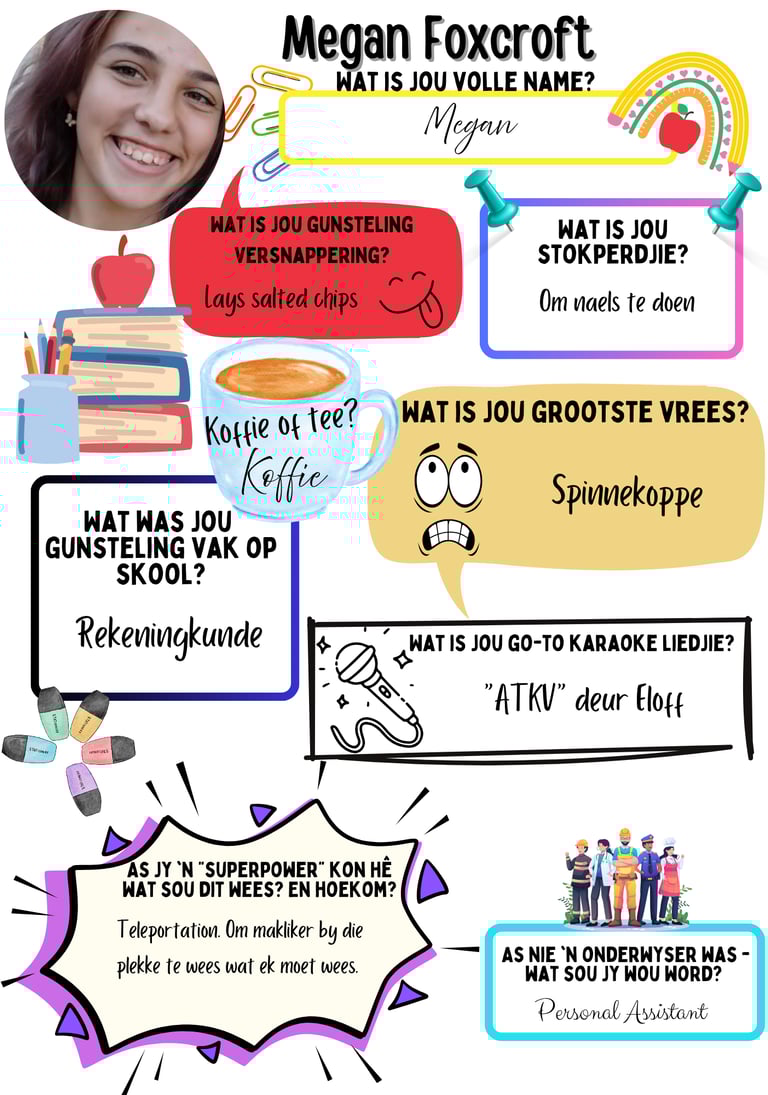 Megan Foxcroft
WAT IS JOU VOLLE NAME?
Megan
WAT IS JOU GUNSTELING
VERSNAPPERING?
Lays salted chips
WAT IS JOU
STOKPERDJIE?
Om naels te doen
Koffie of tee?
Koffie
WAT IS JOU GROOTSTE VREES?
Spinnekoppe
WAT WAS JOU
GUNSTELING VAK OP
SKOOL?
Rekeningkunde
WAT IS JOU GO-TO KARAOKE LIEDJIE?
"ATKV" deur Eloff
AS JY 'N "SUPERPOWER" KON HÊ
WAT SOU DIT WEES? EN HOEKOM?
Teleportation. Om makliker by die
plekke te wees wat ek moet wees.
AS NIE 'N ONDERWYSER WAS -
WAT SOU JY WOU WORD?
Personal Assistant